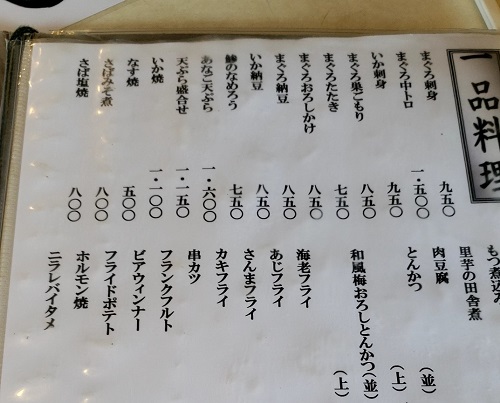 一品料理
まぐろ刺身 九五〇
まぐろ中トロ 一・五〇〇
いか刺身 九五〇
まぐろ巣ごもり 八五〇
まぐろたたき 七五〇
まぐろおろしかけ 八五〇
まぐろ納豆 八五〇
いか納豆 八五〇
鯵のなめろう 七五〇
あなご天ぷら 一・六〇〇
天ぷら盛合せ 一・一五〇
いか焼 一・一〇〇
なす焼 五〇〇
さばみそ煮 八〇〇
さば塩焼 八〇〇
もつ煮込み
里芋の田舎煮
肉豆腐
とんかつ（並）
（上）
和風梅おろしとんかつ（並）
（上）
海老フライ
あじフライ
さんまフライ
カキフライ
串カツ
フランクフルト
ビアウィンナー
フライドポテト
ホルモン焼
ニラレバイタメ